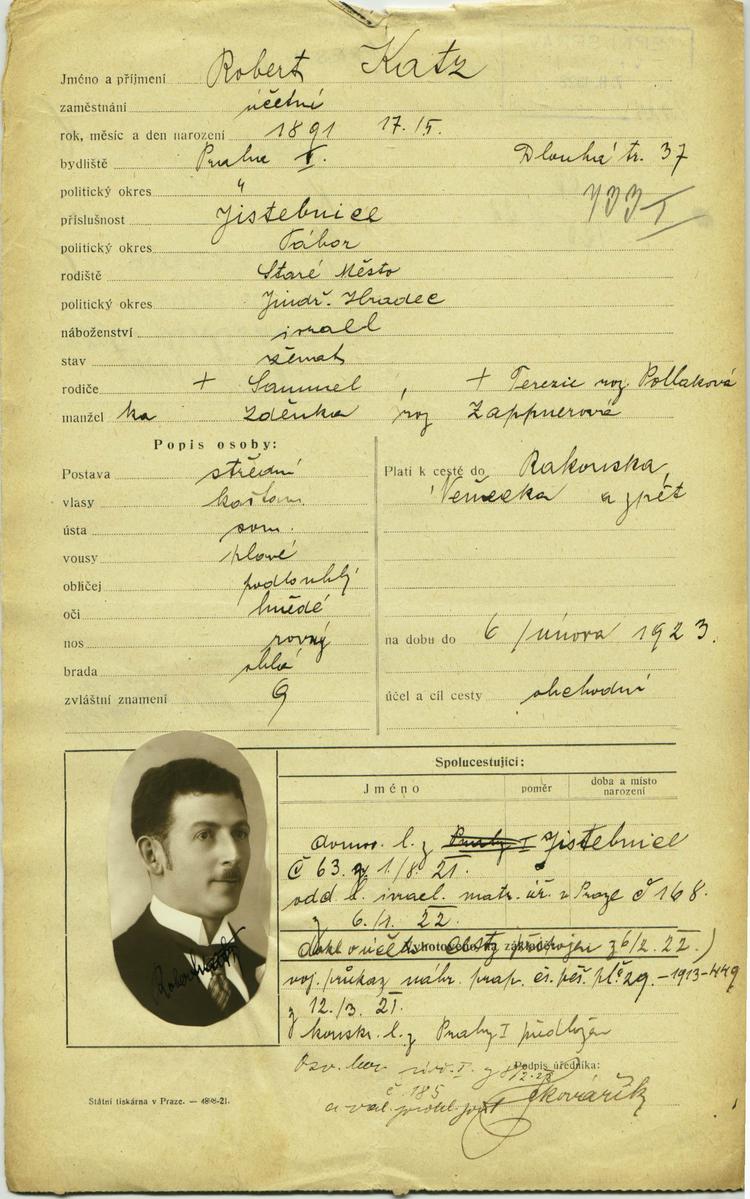 Jméno a příjmení Robert Katz
zaměstnání účetní
rok, měsíc a den narození 1891 17./5.
bydliště Praha I. Dlouhá tr. 37
politický okres "
příslušnost Jistebnice
politický okres Tábor
rodiště Staré Město
politický okres Jindř. Hradec
náboženství israel
stav ženat
rodiče + Samuel, + Terezie roz. Pollaková
manžel ka Zděnka roz Zappnerová
Popis osoby:
Postava střední
vlasy kaštan.
ústa soum.
vousy plavé
obličej podlouhlý
oči hnědé
nos rovný
brada oblá
zvláštní znamení
Platí k cestě do Rakouska,
Německa a zpět
na dobu do 6 /února 1923.
účel a cíl cesty obchodní
Spolucestující:
Jméno poměr doba a místo narození
domov. l. z Prahy I Jistebnice
č 63. z 1/8. 21.
odd. l. israel. matr. úř. v Praze č 168.
z 6./1. 22.
Vyhotoveno na základě:
dokl o účelu cesty připojen z 6/2. 22.)
voj. průkaz náhr. prap. čs. pěš. pl. č 29. - 1913-449
z 12./3. 21.
konskr. l. z Prahy I předložen
č 185
Podpis úředníka:
Kovářík
Robert Katz
Státní tiskárna v Praze. — 4898-21.